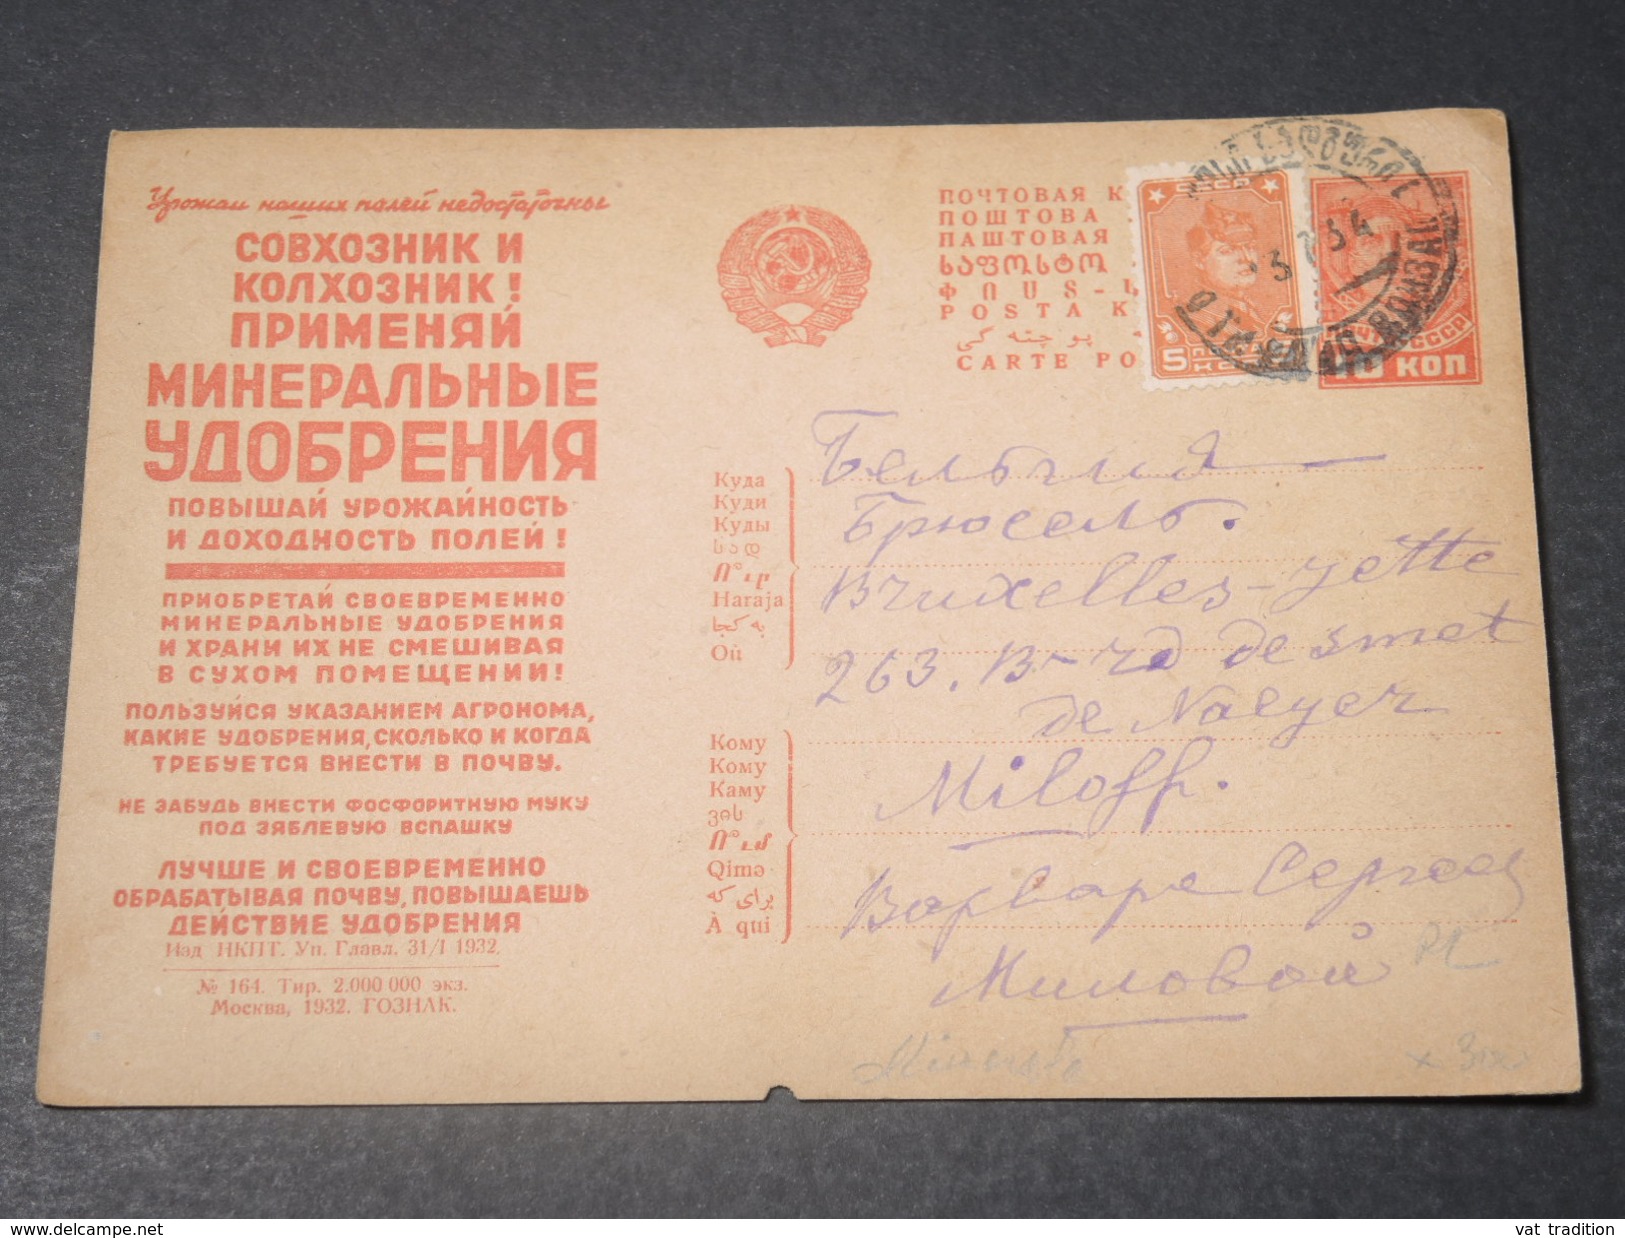 Урожаи наших полей недостаточны
СОВХОЗНИК И
КОЛХОЗНИК!
ПРИМЕНЯЙ
МИНЕРАЛЬНЫЕ
УДОБРЕНИЯ
ПОВЫШАЙ УРОЖАЙНОСТЬ
И ДОХОДНОСТЬ ПОЛЕЙ!
ПРИОБРЕТАЙ СВОЕВРЕМЕННО
МИНЕРАЛЬНЫЕ УДОБРЕНИЯ
И ХРАНИ ИХ НЕ СМЕШИВАЯ
В СУХОМ ПОМЕЩЕНИИ!
ПОЛЬЗУЙСЯ УКАЗАНИЕМ АГРОНОМА,
КАКИЕ УДОБРЕНИЯ, СКОЛЬКО И КОГДА
ТРЕБУЕТСЯ ВНЕСТИ В ПОЧВУ.
НЕ ЗАБУДЬ ВНЕСТИ ФОСФОРИТНУЮ МУКУ
ПОД ЗЯБЛЕВУЮ ВСПАШКУ
ЛУЧШЕ И СВОЕВРЕМЕННО
ОБРАБАТЫВАЯ ПОЧВУ, ПОВЫШАЕШЬ
ДЕЙСТВИЕ УДОБРЕНИЯ
Изд НКПТ. Уп. Главл. 31/I 1932.
№ 164. Тир. 2.000 000 экз.
Москва, 1932. ГОЗНАК.
ПОЧТОВАЯ К
ПОШТОВА
ПАШТОВАЯ
ՓՈՍՏ-
POSTA K
پوچته كى
CARTE PO
СССР
5
СССР
10 КОП
3 7 34
Куда
Куди
Куды
სად
Ո՞ւր
Haraja
به كجا
Où
Кому
Кому
Каму
ვის
Ո՞ւմ
Qimə
برای که
À qui
Бельгия
Брюсель.
Bruxelles-Jette
263. B-rd de Smet
de Naeyer
Miloff.
Варваре Сергеев
Миловой